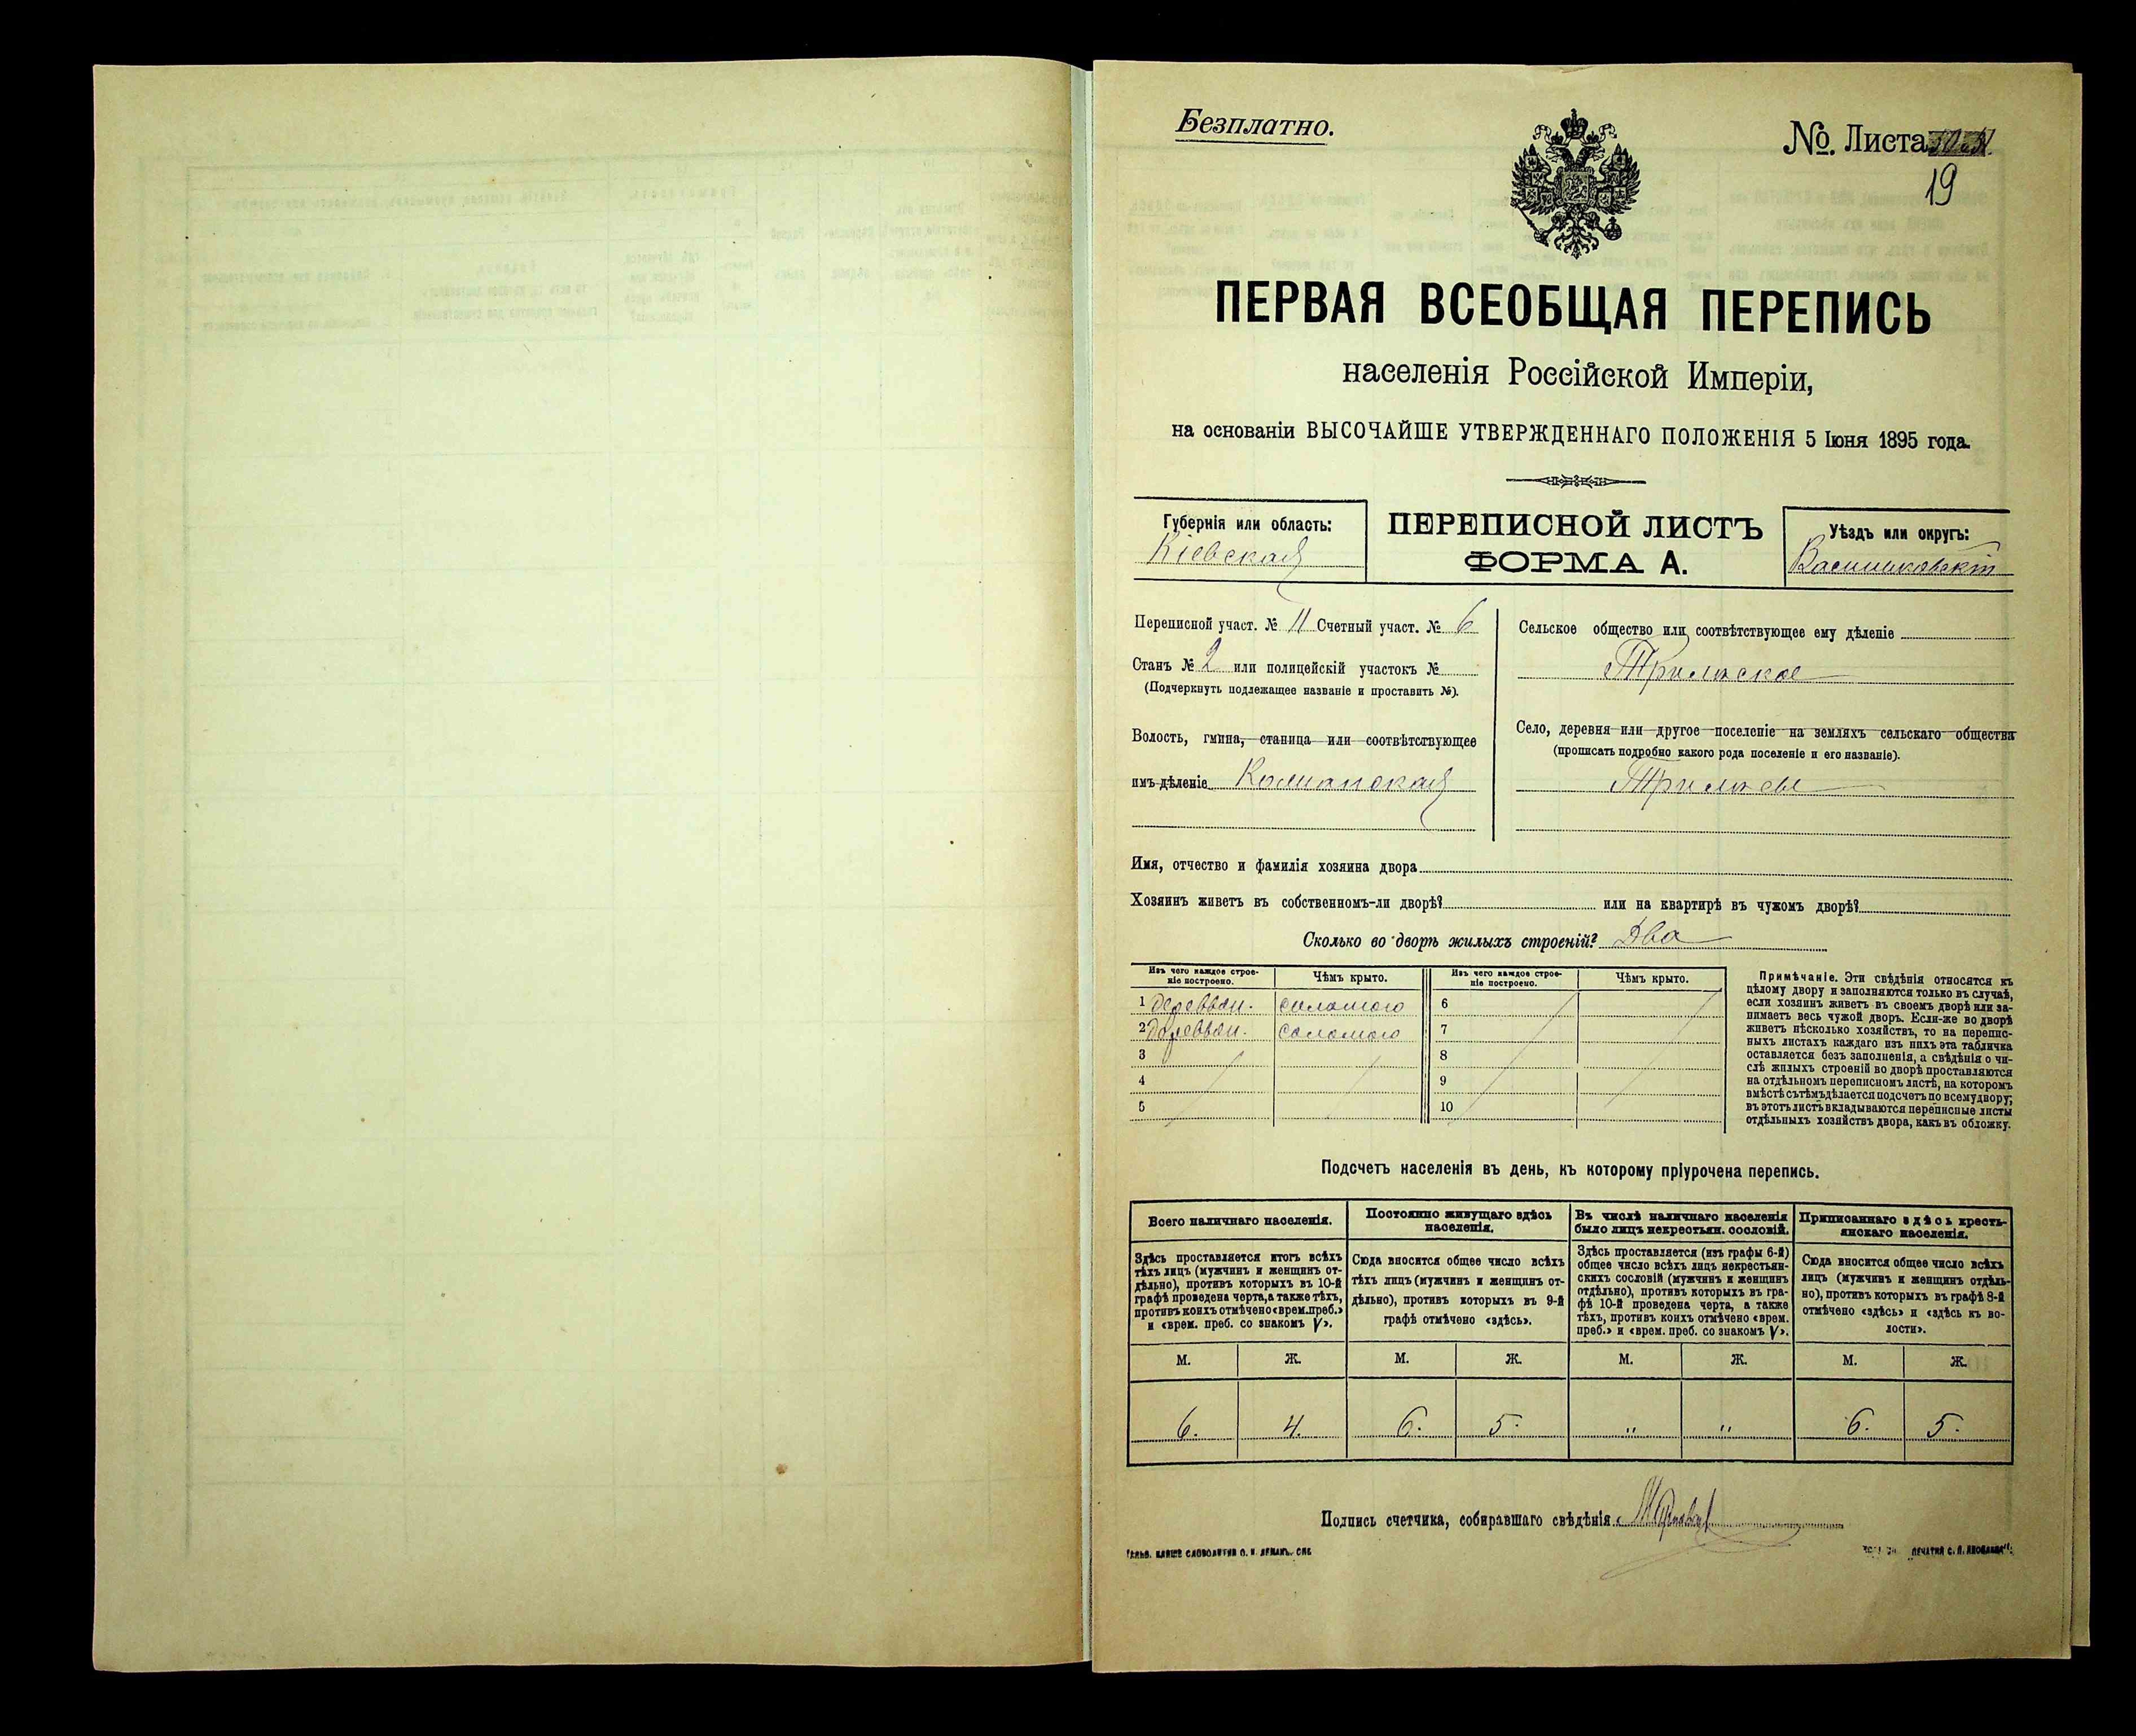 Безплатно.
№. Листа
19
ПЕРВАЯ ВСЕОБЩАЯ ПЕРЕПИСЬ
населенія Россійской Имперіи,
на основаніи ВЫСОЧАЙШЕ УТВЕРЖДЕННАГО ПОЛОЖЕНІЯ 5 Іюня 1895 года.
Губернія или область:
Кіевская
ПЕРЕПИСНОЙ ЛИСТЪ
ФОРМА А.
Уѣздъ или округъ:
Васильковскій
Переписной участ. № 11 Счетный участ. № 6
Станъ № 2 или полицейскій участокъ №
(Подчеркнуть подлежащее названіе и проставить №).
Волость, гмина, станица или соотвѣтствующее
имъ дѣленіе
Сельское общество или соотвѣтствующее ему дѣленіе
Трилѣское
Село, деревня или другое поселеніе на земляхъ сельскаго общества
(прописать подробно какого рода поселеніе и его названіе).
Трилѣсы
Имя, отчество и фамилія хозяина двора
Хозяинъ живетъ въ собственномъ-ли дворѣ? или на квартирѣ въ чужомъ дворѣ?
Сколько во дворѣ жилыхъ строеній? Два
Изъ чего каждое строе-
ніе построено.
Чѣмъ крыто.
1 деревян. соломою
2 деревян. соломою
3
4
5
Изъ чего каждое строе-
ніе построено.
Чѣмъ крыто.
6
7
8
9
10
Примѣчаніе. Эти свѣдѣнія относятся къ
цѣлому двору и заполняются только въ случаѣ,
если хозяинъ живетъ въ своемъ дворѣ или за-
нимаетъ весь чужой дворъ. Если-же во дворѣ
живетъ нѣсколько хозяйствъ, то на перепис-
ныхъ листахъ каждаго изъ нихъ эта табличка
оставляется безъ заполненія, а свѣдѣнія о чи-
слѣ жилыхъ строеній во дворѣ проставляются
на отдѣльномъ переписномъ листѣ, на которомъ
вмѣстѣ съ тѣмъ дѣлается подсчетъ по всему двору;
въ этотъ листъ вкладываются переписные листы
отдѣльныхъ хозяйствъ двора, какъ въ обложку.
Подсчетъ населенія въ день, къ которому пріурочена перепись.
Всего наличнаго населенія.
Здѣсь проставляется итогъ всѣхъ
тѣхъ лицъ (мужчинъ и женщинъ от-
дѣльно), противъ которыхъ въ 10-й
графѣ проведена черта, а также тѣхъ,
противъ коихъ отмѣчено «врем. преб.»
и «врем. преб. со знакомъ V».
М. Ж.
6. 4.
Постоянно живущаго здѣсь
населенія.
Сюда вносится общее число всѣхъ
тѣхъ лицъ (мужчинъ и женщинъ от-
дѣльно), противъ которыхъ въ 9-й
графѣ отмѣчено «здѣсь».
М. Ж.
6. 5.
Въ числѣ наличнаго населенія
было лицъ некрестьян. сословій.
Здѣсь проставляется (изъ графы 6-й)
общее число всѣхъ лицъ некрестьян-
скихъ сословій (мужчинъ и женщинъ
отдѣльно), противъ которыхъ въ гра-
фѣ 10-й проведена черта, а также
тѣхъ, противъ коихъ отмѣчено «врем.
преб.» и «врем. преб. со знакомъ V».
М. Ж.
" "
Приписаннаго здѣсь кресть-
янскаго населенія.
Сюда вносится общее число всѣхъ
лицъ (мужчинъ и женщинъ отдѣль-
но), противъ которыхъ въ графѣ 8-й
отмѣчено «здѣсь» и «здѣсь къ во-
лости».
М. Ж.
6. 5.
Подпись счетчика, собиравшаго свѣдѣнія